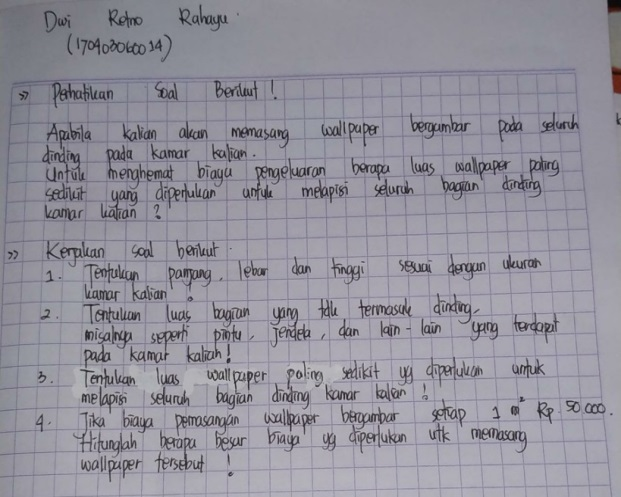 Dwi Retno Rahayu.
(170403060014)
>> Perhatikan Soal Berikut !
Apabila kalian akan memasang wallpaper bergambar pada seluruh
dinding pada kamar kalian.
Untuk menghemat biaya pengeluaran berapa luas wallpaper paling
sedikit yang diperlukan untuk melapisi seluruh bagian dinding
kamar kalian ?
>> Kerjakan soal berikut.
1. Tentukan panjang, lebar dan tinggi sesuai dengan ukuran
kamar kalian !
2. Tentukan luas bagian yang tdk termasuk dinding,
misalnya seperti pintu, jendela, dan lain-lain yang terdapat
pada kamar kalian!
3. Tentukan luas wallpaper paling sedikit yg diperlukan untuk
melapisi seluruh bagian dinding kamar kalian !
4. Jika biaya pemasangan wallpaper bergambar setiap 1 m² Rp. 50.000.
Hitunglah berapa besar biaya yg diperlukan utk memasang
wallpaper tersebut !